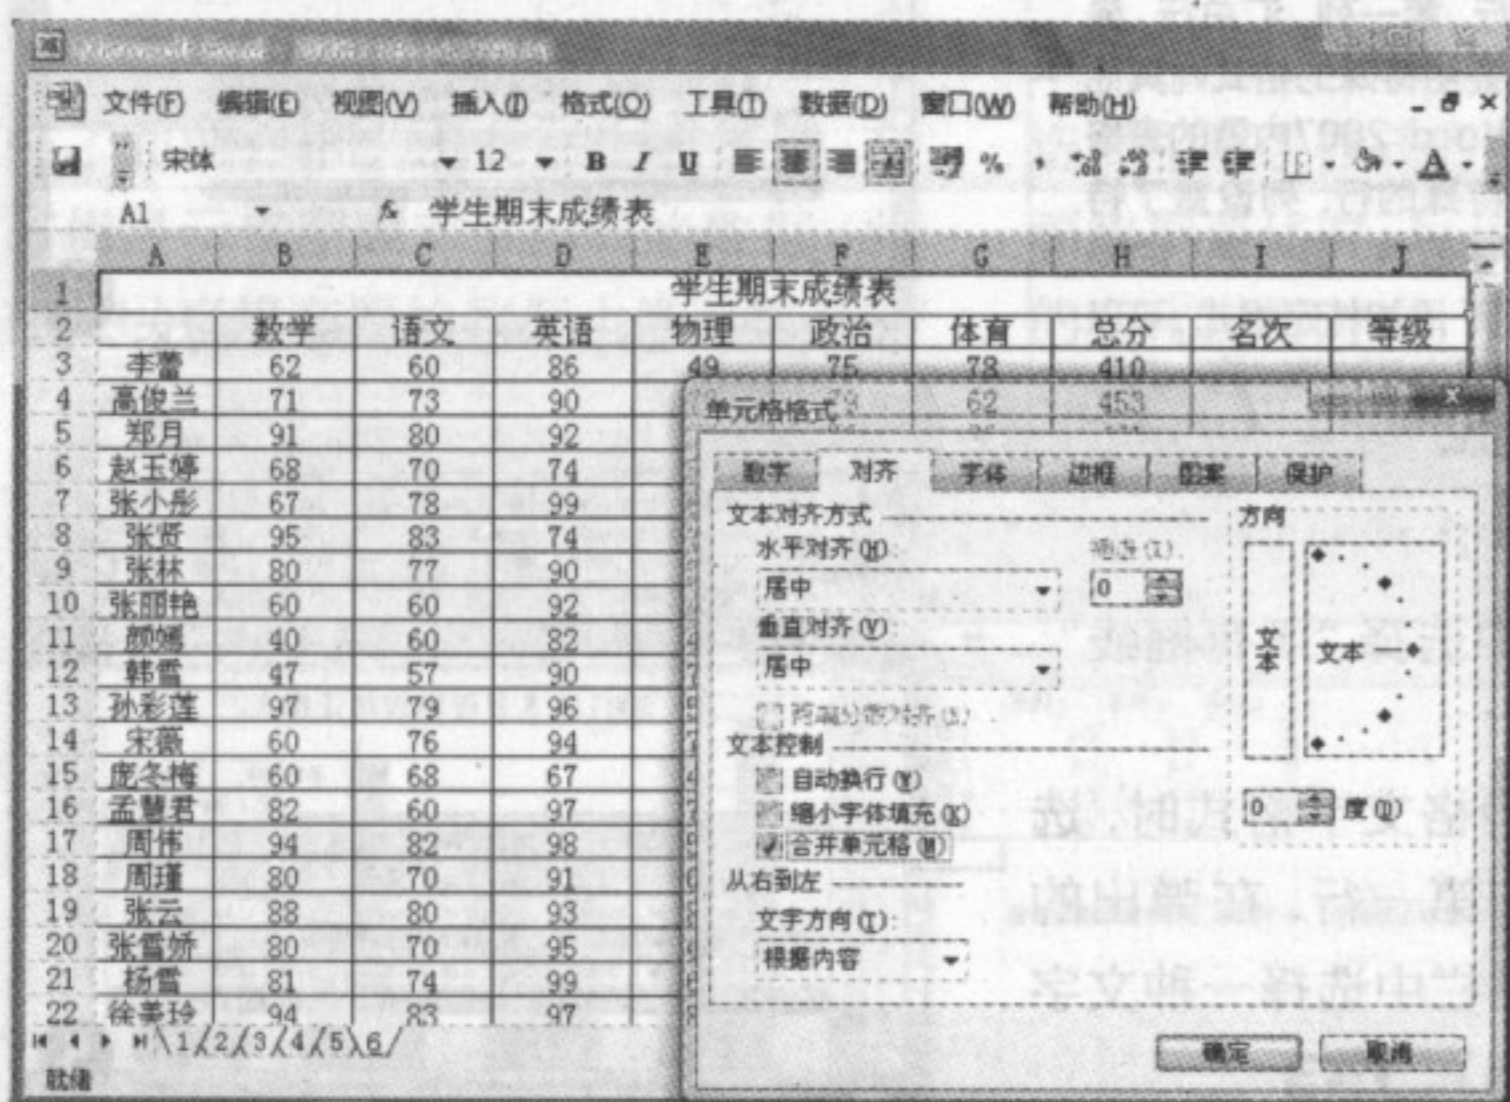 文件(F) 编辑(E) 视图(V) 插入(I) 格式(O) 工具(T) 数据(D) 窗口(W) 帮助(H)
宋体 12 B I U % A
A1 fx 学生期末成绩表
A B C D E F G H I J
1 学生期末成绩表
2 数学 语文 英语 物理 政治 体育 总分 名次 等级
3 李蕾 62 60 86 49 75 78 410
4 高俊兰 71 73 90 62 453
5 郑月 91 80 92
6 赵玉婷 68 70 74
7 张小彤 67 78 99
8 张贤 95 83 74
9 张林 80 77 90
10 张丽艳 60 60 92
11 颜嫣 40 60 82
12 韩雪 47 57 90
13 孙彩莲 97 79 96
14 宋薇 60 76 94
15 庞冬梅 60 68 67
16 孟慧君 82 60 97
17 周伟 94 82 98
18 周瑾 80 70 91
19 张云 88 80 93
20 张雪娇 80 70 95
21 杨雪 81 74 99
22 徐美玲 94 83 97
1 2 3 4 5 6
就绪
单元格格式
数字 对齐 字体 边框 图案 保护
文本对齐方式
水平对齐(H): 缩进(I)
居中 0
垂直对齐(V):
居中
两端分散对齐(S)
文本控制
自动换行(W)
缩小字体填充(K)
合并单元格(M)
从右到左
文字方向(T):
根据内容
方向
文本
文本
0 度(D)
确定 取消